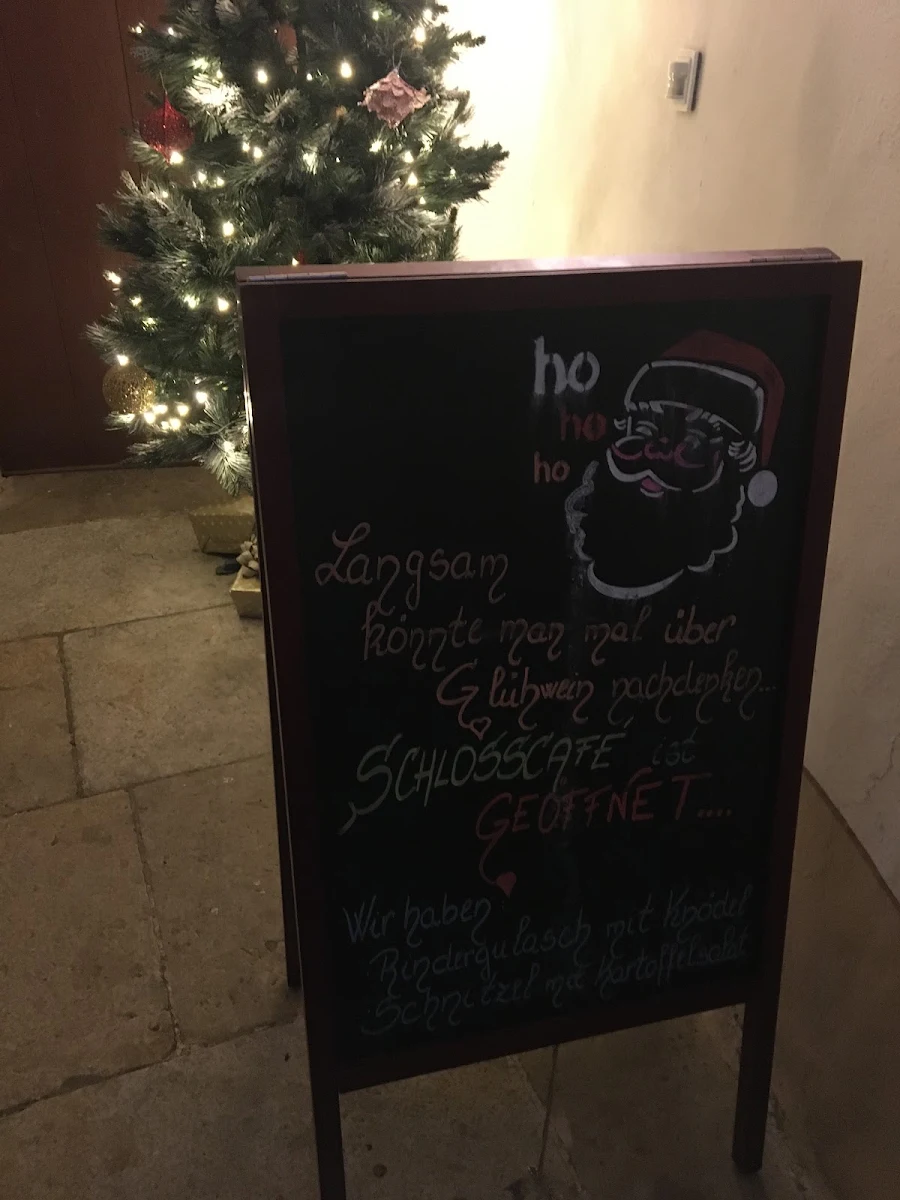 ho
ho
ho
Langsam
könnte man mal über
Glühwein nachdenken...
SCHLOSSCAFÉ ist
GEÖFFNET....
Wir haben
Rindergulasch mit Knödel
Schnitzel mit Kartoffelsalat